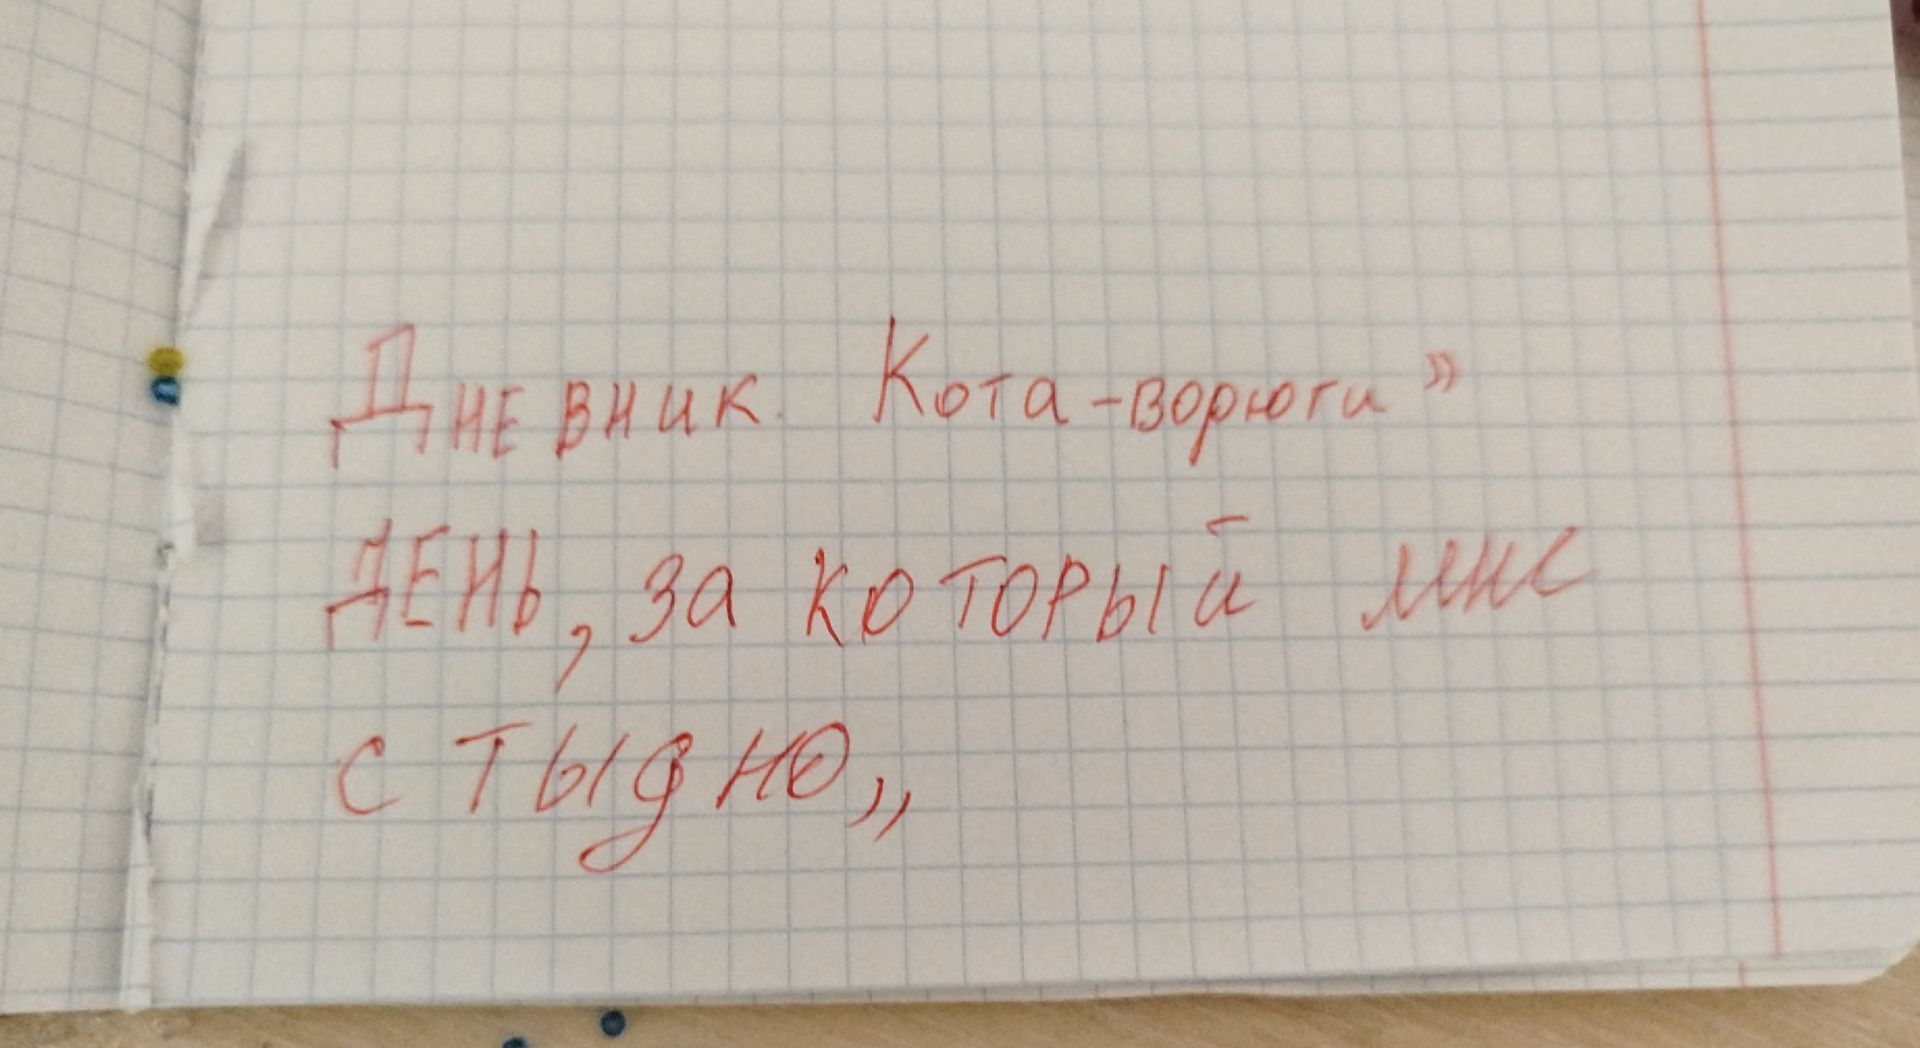 Дневник Кота-ворюги”
ДЕНЬ, за который мне
стыдно„